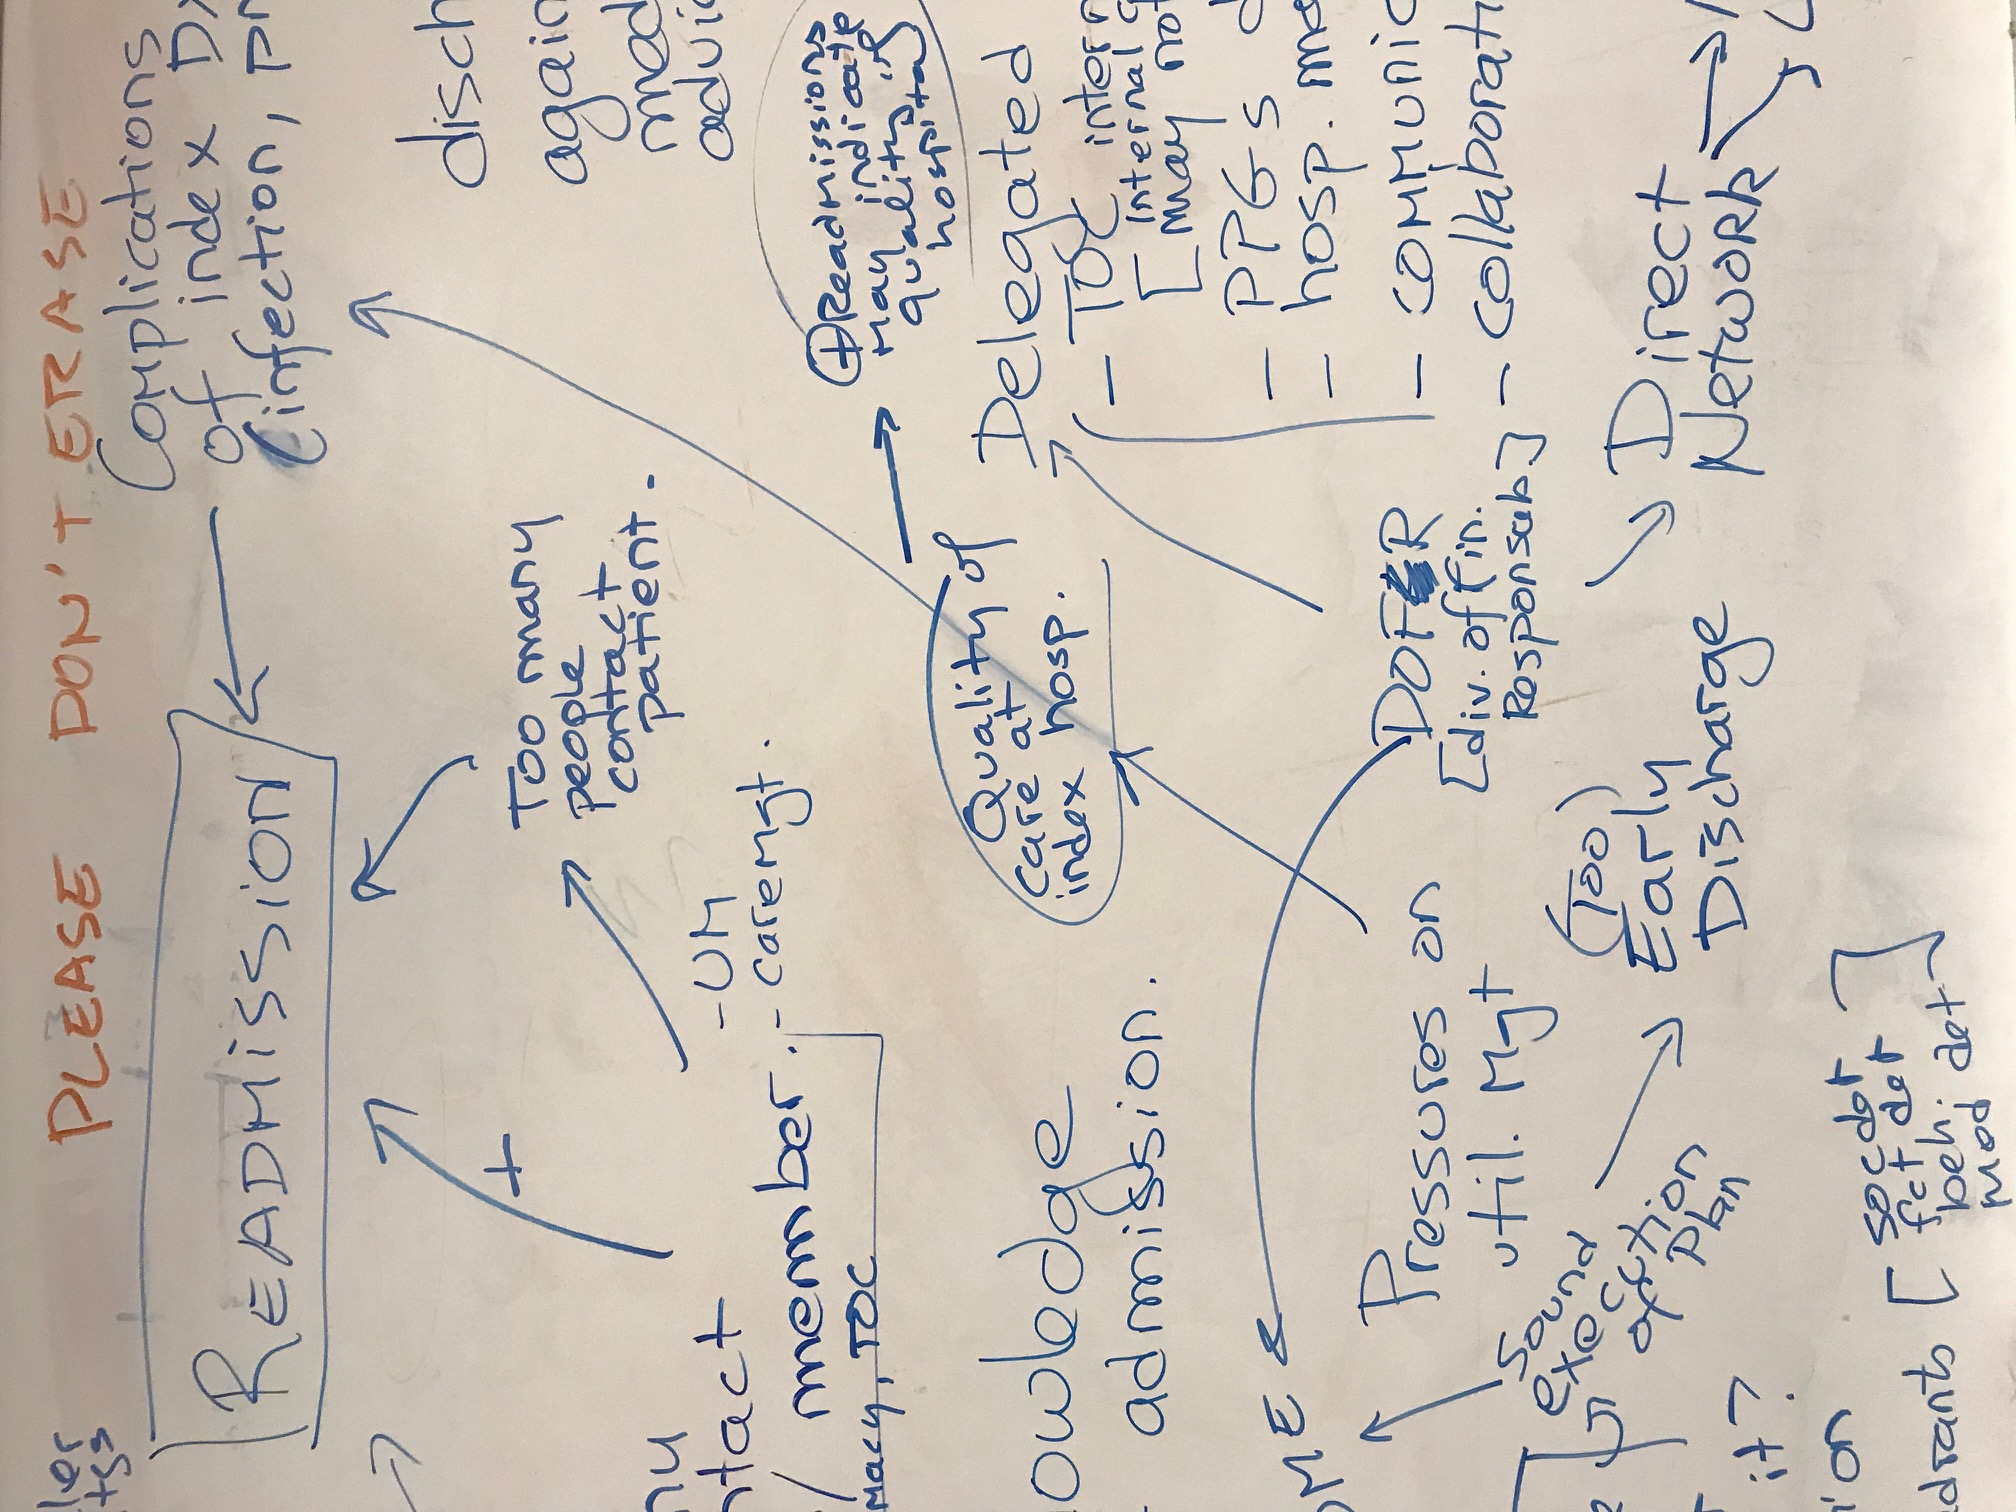 PLEASE DON'T ERASE
READMISSION
Complications
of index DX
(infection,
+
Too many
people
contact
patient.
- UM
- care Mgt.
/ member.
TOC
advic
⊕ Readmissions
may indicate
quality of
hospital
Quality of
care at
index hosp.
owledge
admission.
Delegated
- TOC intern
[ internal
may not
- PPGs
- hosp.
- communic
- collaborati
OME
Pressures on
util. Mgt
DOFR
[div. of fin.
Responsab.]
Sound
execution
of
Plan
(Too)
Early
Discharge
Direct
Network
it?
ion
drants [ soc det
fct det
beh.
mod det ]